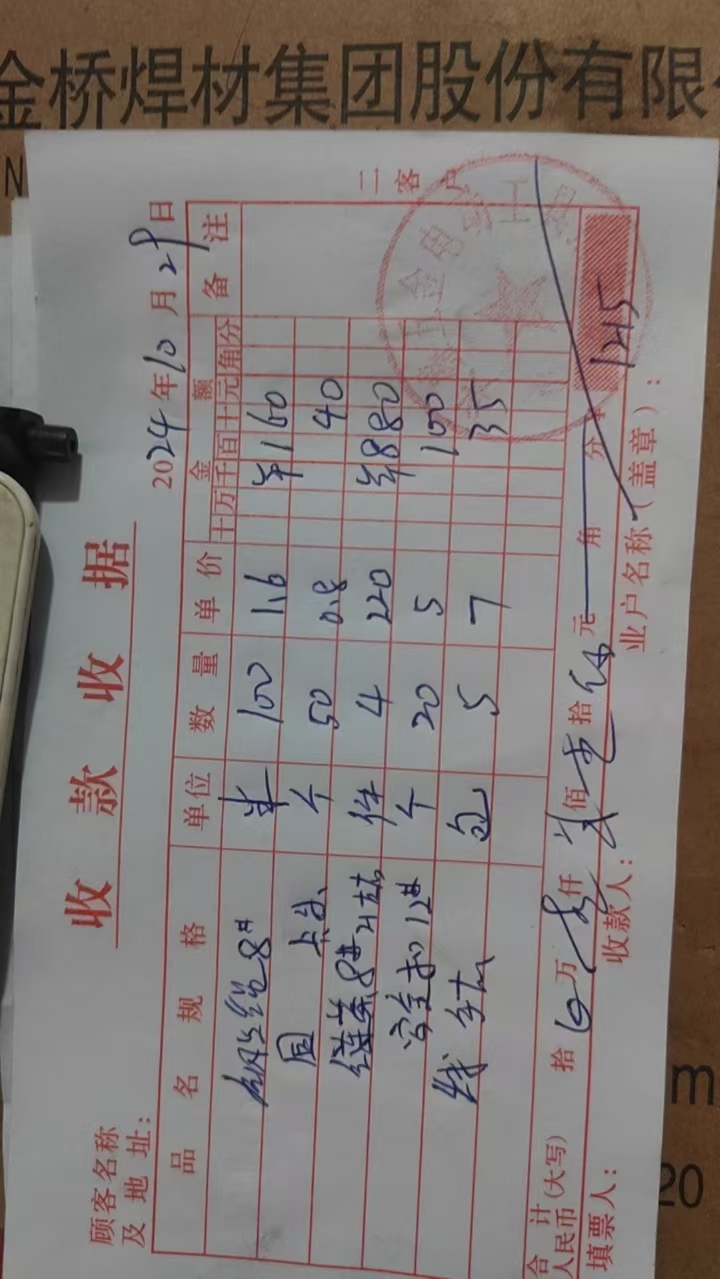 金桥焊材集团股份有限
二客户
收款收据
2024年10月29日
顾客名称
及地址:
品名规格 单位 数量 单价 金额 备注
十万千百十元角分
钢丝绳8# 米 100 1.6 ¥160
卡头 个 50 0.8 40
8# 件 4 220 ¥880
12# 个 20 5 100
线手套 包 5 7 35
合计
人民币(大写) 拾 万 仟 佰 壹拾伍元 角 分 1215
填票人: 收款人: 业户名称(盖章):
m
20